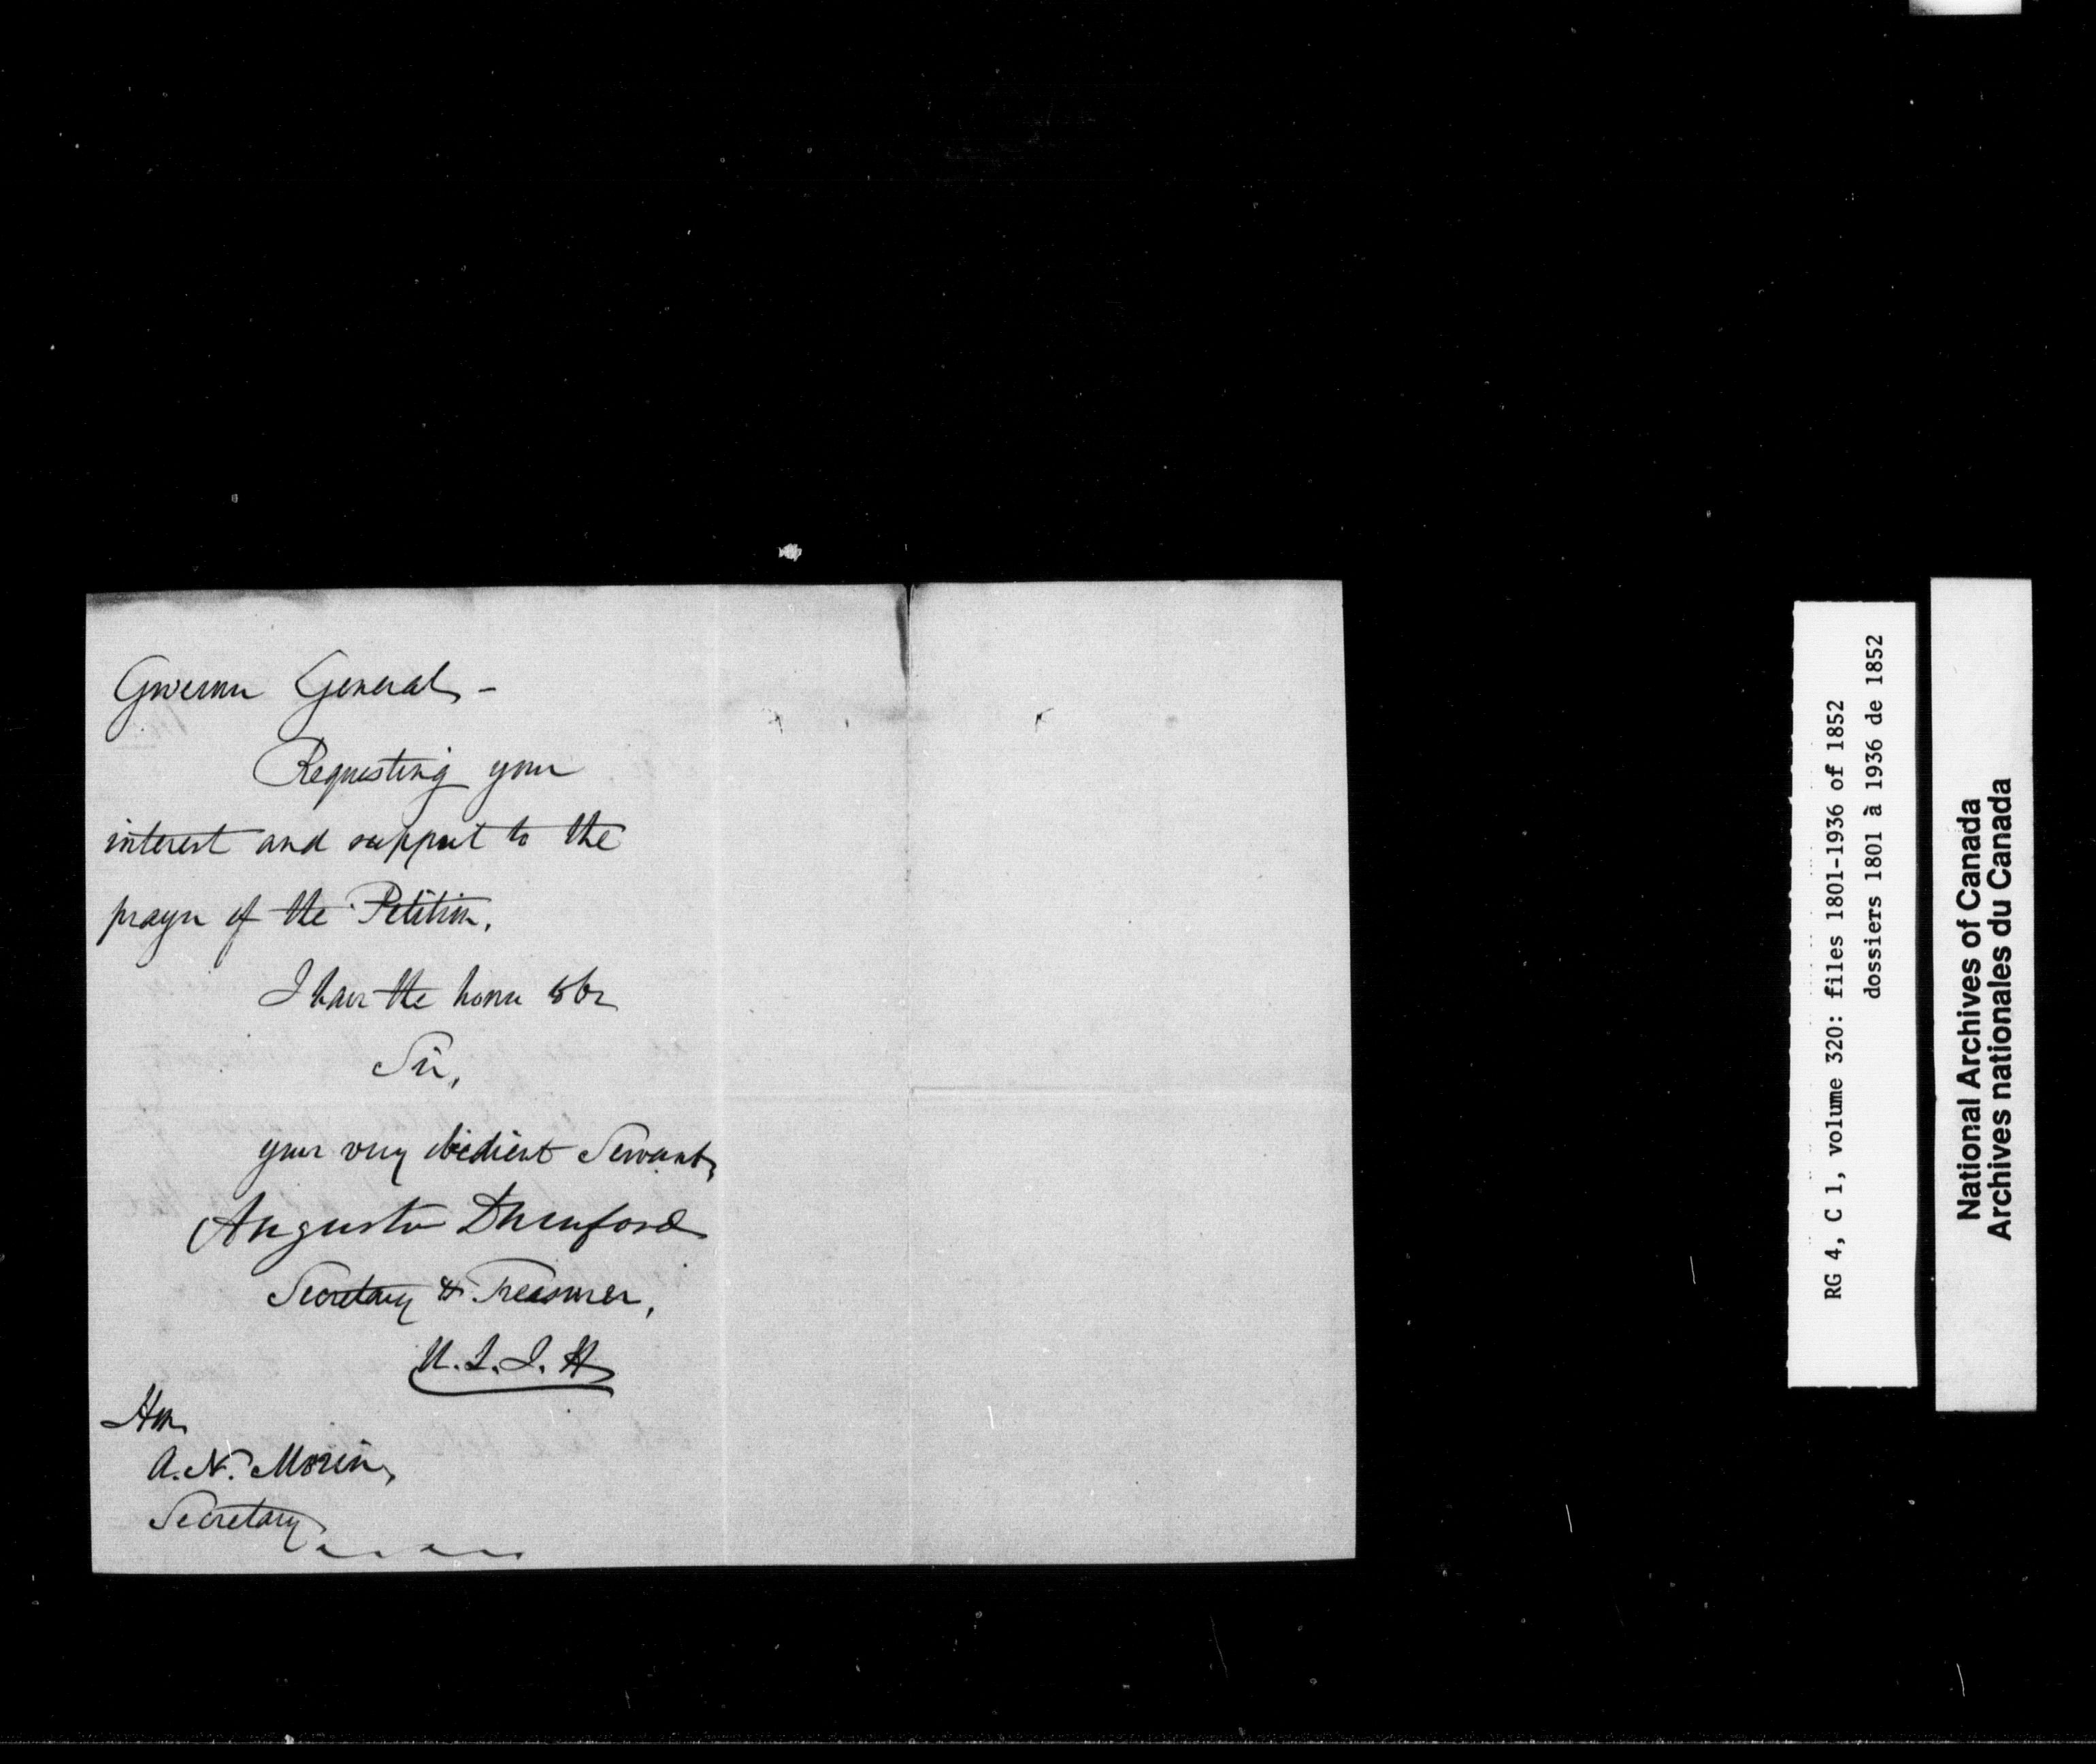 Governor General, -
Requesting your
interest and support to the
prayer of the Petition,
I have the honor to be
Sir,
your very obedient Servant,
Secretary & Treasurer,
Hon
A. N. Morin,
Secretary
RG 4, C 1, volume 320: files 1801-1936 of 1852
dossiers 1801 à 1936 de 1852
National Archives of Canada
Archives nationales du Canada